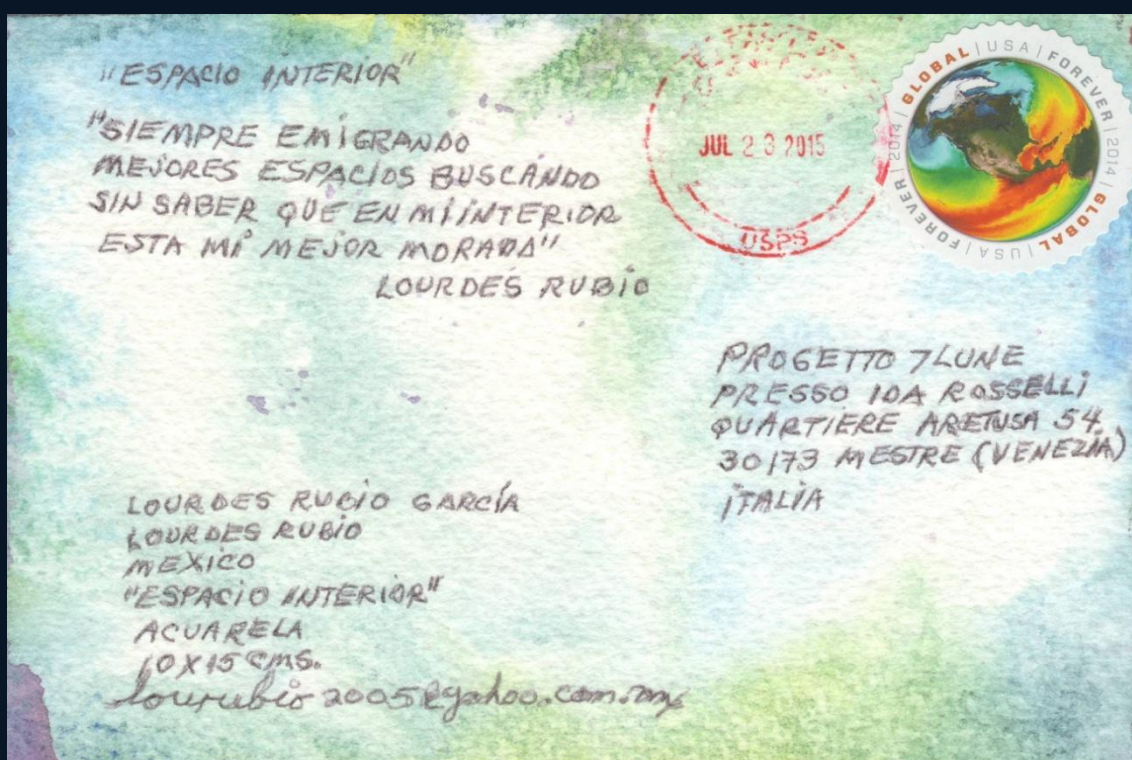 "ESPACIO INTERIOR"
"SIEMPRE EMIGRANDO
MEJORES ESPACIOS BUSCANDO
SIN SABER QUE EN MI INTERIOR
ESTA MI MEJOR MORADA"
LOURDES RUBIO
JUL 23 2015
USPS
GLOBAL | USA | FOREVER | 2014 | GLOBAL | USA | FOREVER | 2014
PROGETTO 7 LUNE
PRESSO IDA ROSSELLI
QUARTIERE ARETUSA 54
30173 MESTRE (VENEZIA)
ITALIA
LOURDES RUBIO GARCÍA
LOURDES RUBIO
MEXICO
"ESPACIO INTERIOR"
ACUARELA
10X15 CMS.
lourubio2005@yahoo.com.mx